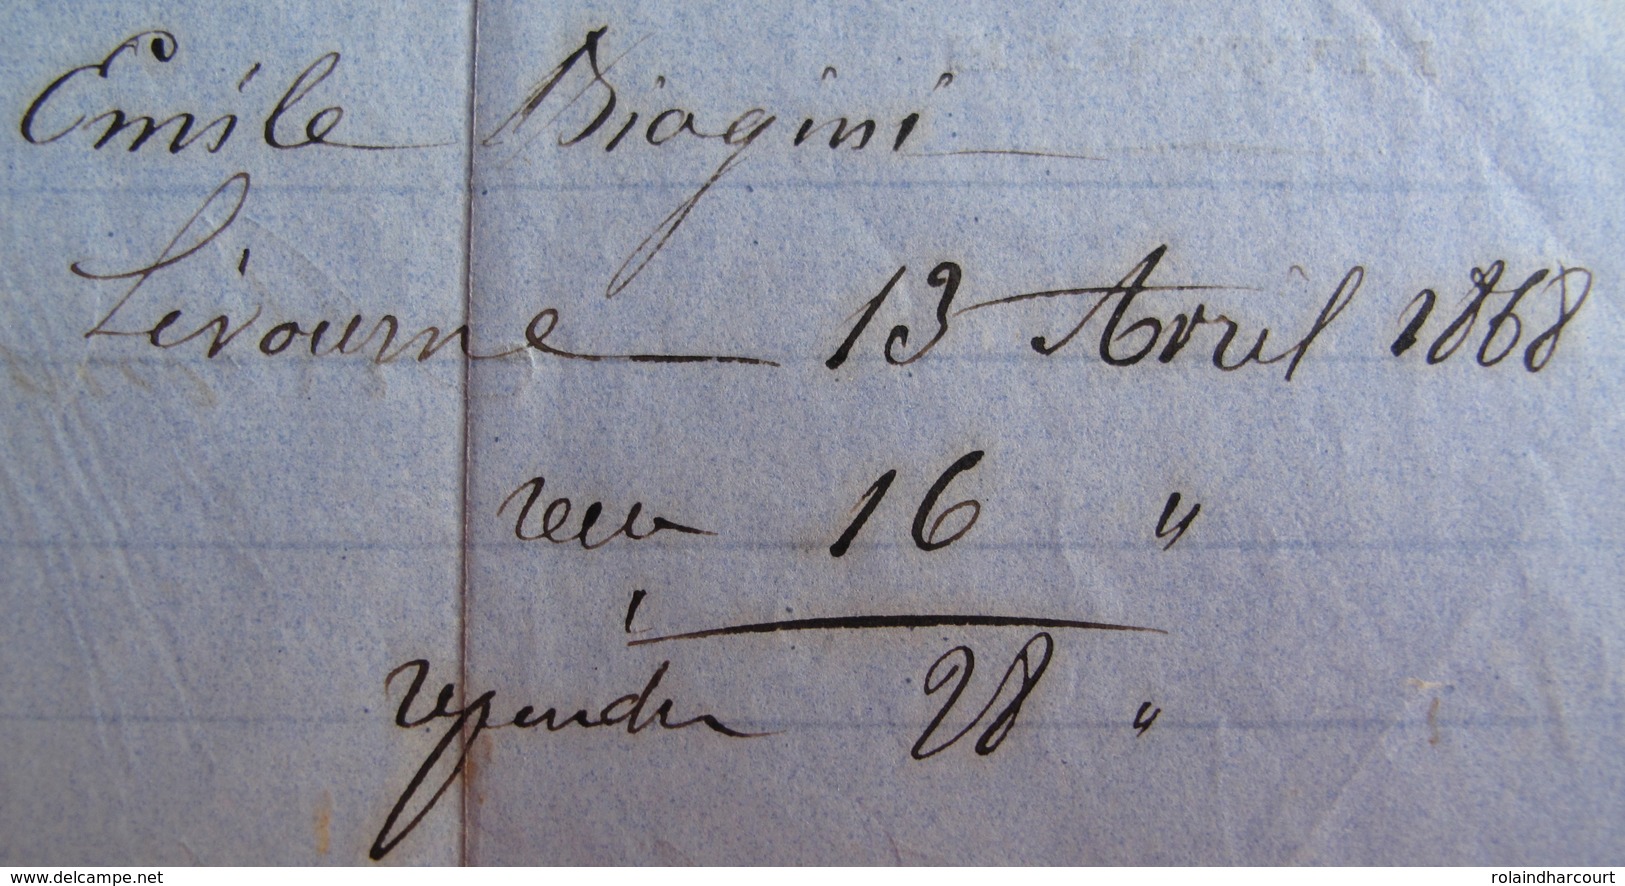 Emile Biagini
Livourne 13 Avril 1868
recu 16 "
rependu 28 "
www.delcampe.net
rolaindharcourt